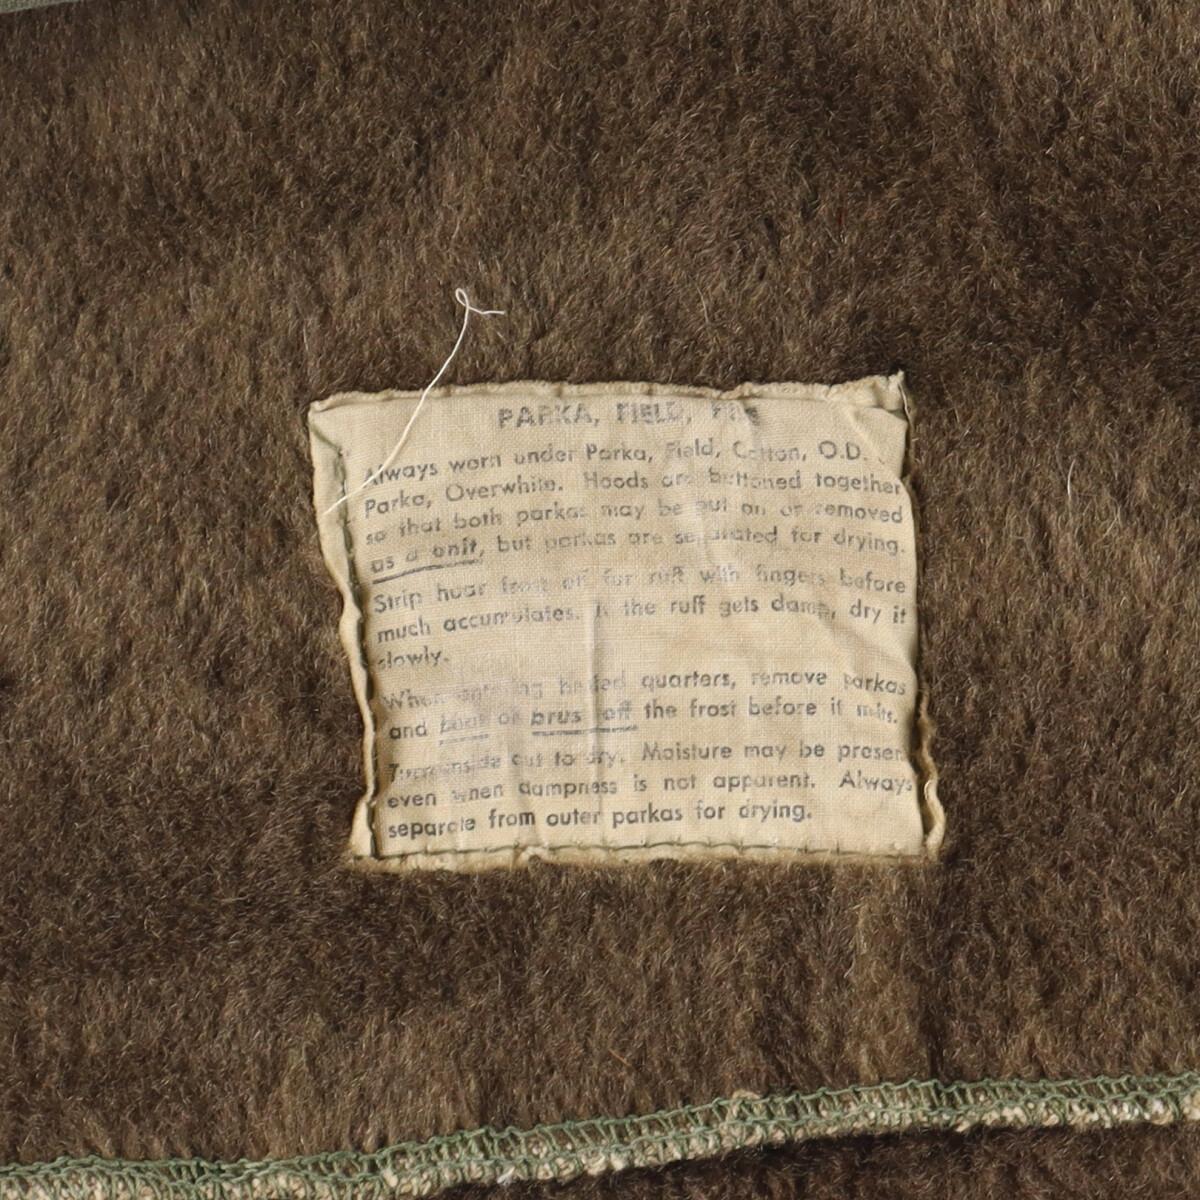 PARKA, FIELD, PILE
Always worn under Parka, Field, Cotton, O.D.
Parka, Overwhite. Hoods are buttoned together
so that both parkas may be put on or removed
as a unit, but parkas are separated for drying.
Strip hoar frost off fur ruff with fingers before
much accumulates. If the ruff gets damp, dry it
slowly.
When entering heated quarters, remove parkas
and beat or brush off the frost before it melts.
Turn inside out to dry. Moisture may be presen
even when dampness is not apparent. Always
separate from outer parkas for drying.